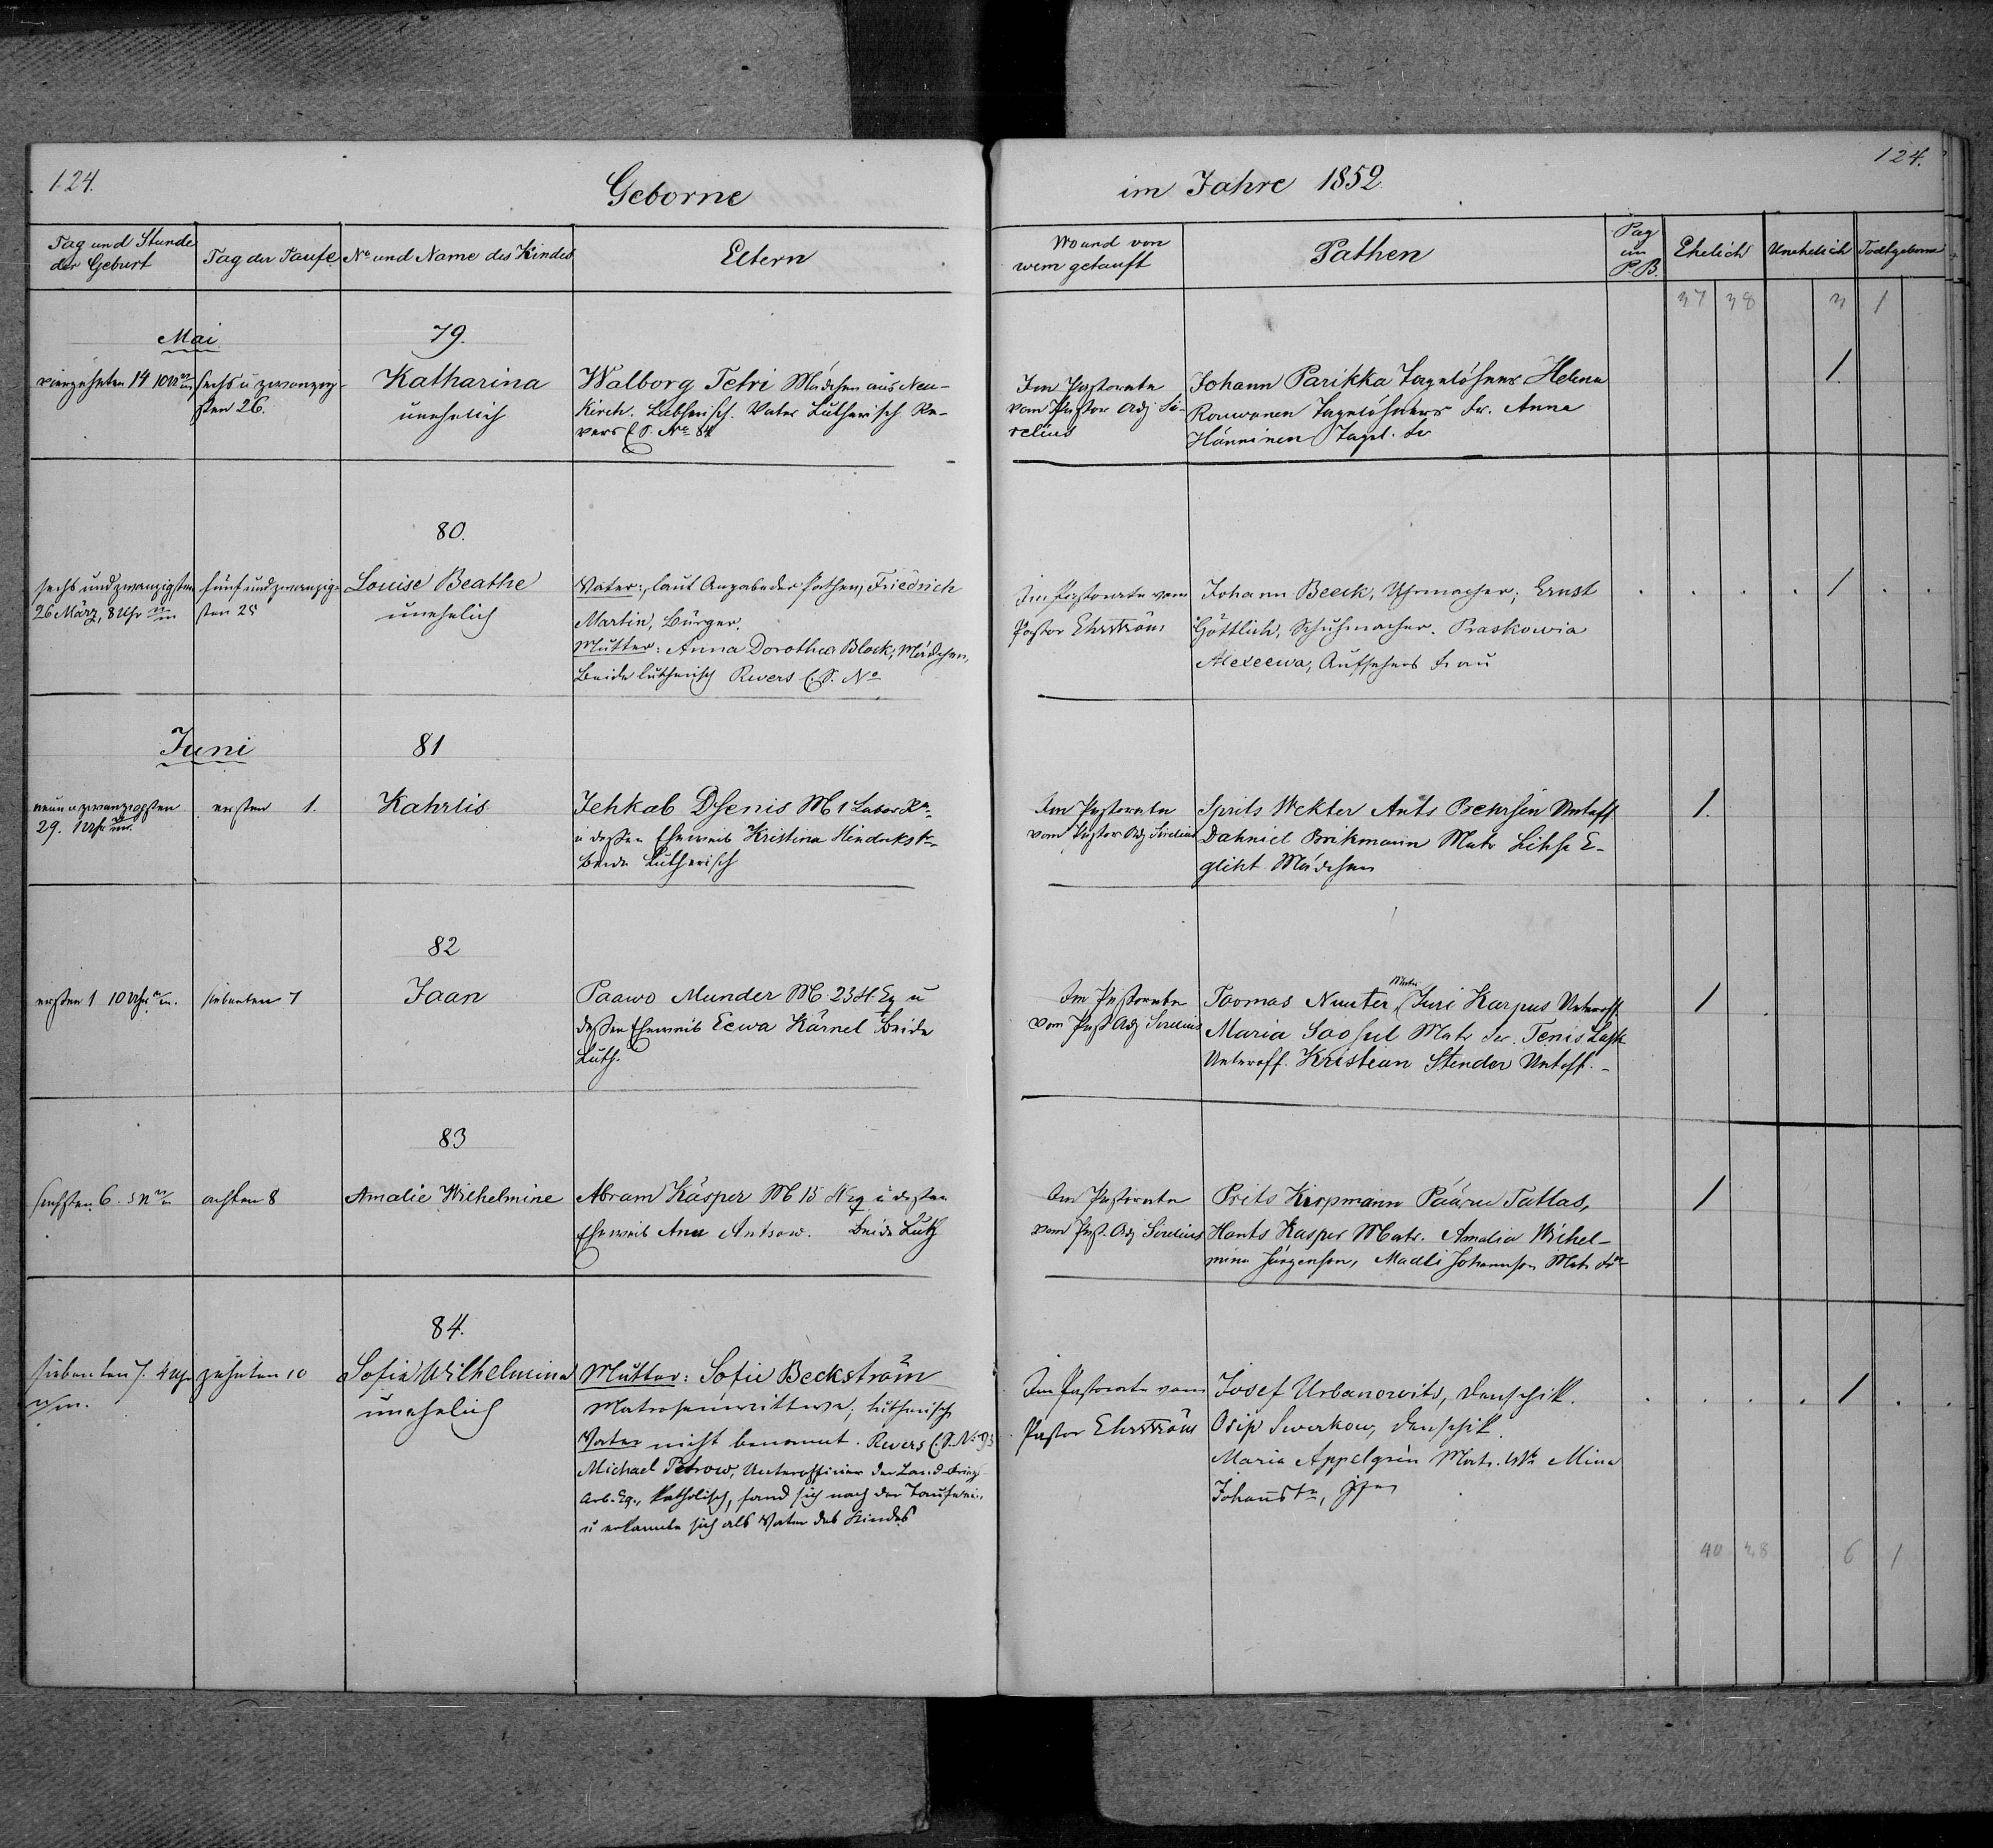 124.
Geborne
im Jahre 1852.
124.
Tag und Stunde
der Geburt
Tag der Taufe
No und Name des Kindes
Eltern
Wo und von
wem getauft
Pathen
Pag
im
P.B.
Ehelich
Unehelich
Todtgeborne
37 38 3 1
Mai
79.
vierzehnten 14 10 U
sechs u zwanzig-
sten 26.
Katharina
unehelich
Walborg Tetri Mädchen aus Neu-
Kirch. Lutherisch. Vater Lutherisch Re-
vers C.S. No 84
Im Pastorate
vom Pastor Adj Si-
relius
Johann Parikka Tagelöhner Helena
Rouwonen Tagelöhners Fr. Anna
Hänninen Tagel. Fr
1.
80.
sechs und zwanzigsten
26 März, 8 Uhr
fünf und zwanzig-
sten 25
Louise Beathe
unehelich
Vater:, laut Angabe der Pathen, Friedrich
Martin, Bürger.
Mutter: Anna Dorothea Block, Mädchen,
Beide lutherisch Revers C.S. No
Im Pastorate vom
Pastor Ehrström
Johann Beeck, Uhrmacher; Ernst
Göttlich, Schuhmacher. Praskowia
Alexeewa, Aufsehers Frau
1
Juni
81
neun u zwanzigsten
29. 1 Uhr
ersten 1.
Kahrlis
Jehkab Dsenis M 1 Labor
u dessen Eheweib Kristina Hindriks
Beide Lutherisch
Im Pastorate
vom Pastor Adj Sirelius
Sprits Wekter Ants Untoff
Dahniel Brikmann Matr Lihse E-
gliht Mädchen
1.
82
ersten 1 10 Uhr
siebenten 7
Jaan
Paawo Munder M. 23 Eq u
dessen Eheweib Eewa Kärnel Beide
Luth.
Im Pastorate
vom Past Adj Sirelius
Toomas Nuuter Juri Karpus Unteroff.
Maria Matr Fr. Tenis
Unteroff. Kristian Stender Untoff.
1
83
sechsten 6. 5 U
achten 8
Amalie Wilhelmine
Abram Käsper M 15 u dessen
Eheweib Ann Antsow. Beide Luth
Im Pastorate
vom Past. Adj Sirelius
Prits Kirpmann Päärn Tattas,
Hants Kasper Matr. Amalia Wihel-
mina Jürgenson, Madli Johannson Matr
1
84.
siebenten 7. 4 Uhr
zehnten 10
Sofia Wilhelmina
unehelich
Mutter: Sofie Beckström
Matrosenwittwe; lutherisch
Vater nicht benannt. Revers C.S. No
Michael Petrow, Unterofficier der
Arb. Eq., katholisch, fand sich nach der Taufe ein,
u erkannte sich als Vater des Kindes
Im Pastorate vom
Pastor Ehrström
Josef Urbanowits, Denschik.
Osip Swerkow, Denschik.
Maria Appelgrén Matr. Mina
1
40 38 6 1